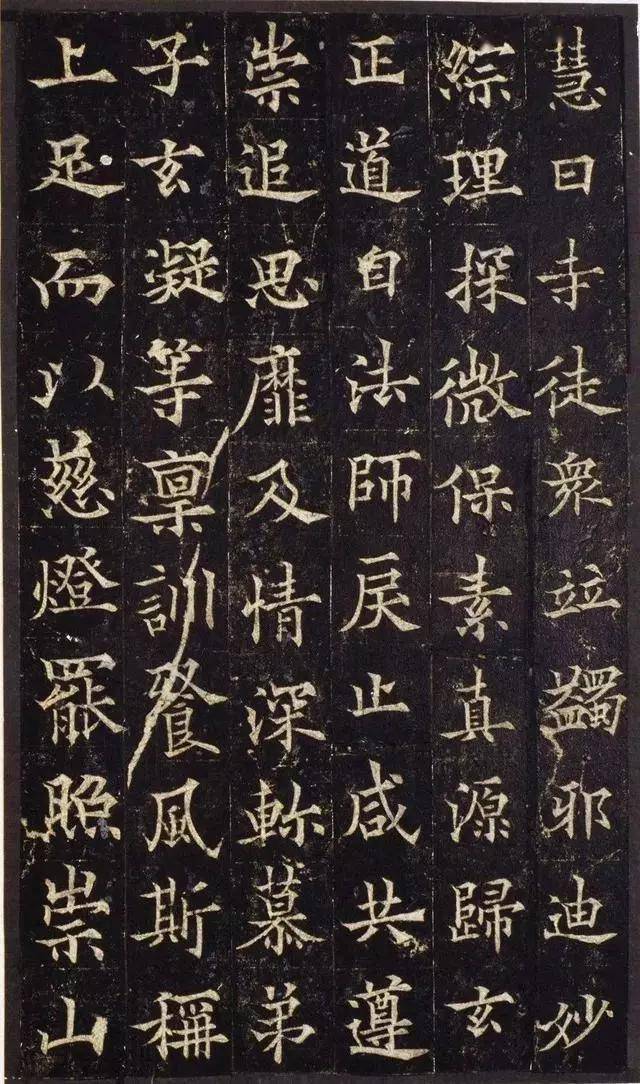 慧日寺徒衆竝蠲耶迪妙
綜理探微保素真源歸玄
正道自法師戾止咸共遵
崇追思靡及情深軫慕弟
子玄凝等稟訓飡風斯稱
上足而以慈燈罷照崇山